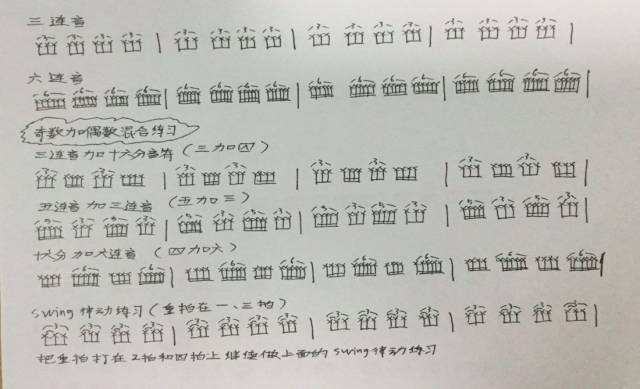 三连音
六连音
奇数加偶数混合练习
三连音加十六分音符（三加四）
五连音加三连音（五加三）
十六分加六连音（四加六）
swing律动练习（重拍在一、三拍）
把重拍打在2拍和四拍上继续做上面的swing律动练习